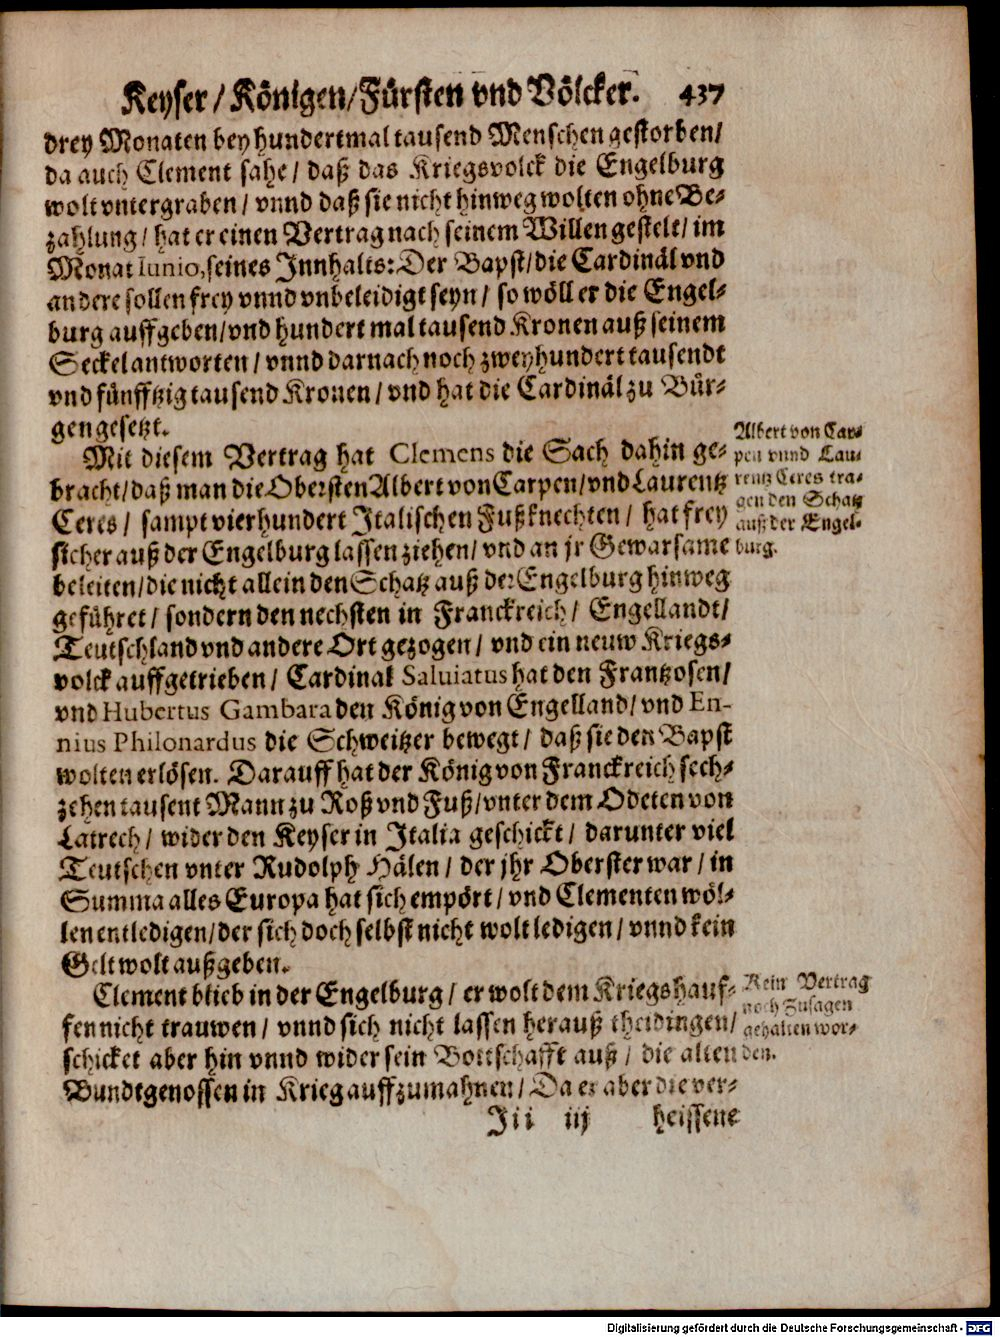 Keyser / Königen / Fürsten vnd Völcker. 437
drey Monaten bey hundertmal tausend Menschen gestorben /
da auch Clement sahe / daß das Kriegsvolck die Engelburg
wolt vntergraben / vnnd daß sie nicht hinweg wolten ohne Be-
zahlung / hat er einen Vertrag nach seinem Willen gestelt / im
Monat Iunio, seines Innhalts: Der Bapst / die Cardinäl vnd
andere sollen frey vnnd vnbeleidigt seyn / so wöll er die Engel-
burg auffgeben / vnd hundert mal tausend Kronen auß seinem
Seckel antworten / vnnd darnach noch zweyhundert tausendt
vnd fünfftzig tausend Kronen / vnd hat die Cardinäl zu Bür-
gen gesetzt.
Mit diesem Vertrag hat Clemens die Sach dahin ge-
bracht / daß man die Obersten Albert von Carpen / vnd Laurentz
Ceres / sampt vierhundert Italischen Fußknechten / hat frey
sicher auß der Engelburg lassen ziehen / vnd an jr Gewarsame
beleiten / die nicht allein den Schatz auß der Engelburg hinweg
geführet / sondern den nechsten in Franckreich / Engellandt /
Teutschland vnd andere Ort gezogen / vnd ein neuw Kriegs-
volck auffgetrieben / Cardinal Saluiatus hat den Frantzosen /
vnd Hubertus Gambara den König von Engelland / vnd En-
nius Philonardus die Schweitzer bewegt / daß sie den Bapst
wolten erlösen. Darauff hat der König von Franckreich sech-
zehen tausent Mann zu Roß vnd Fuß / vnter dem Odeten von
Latrech / wider den Keyser in Italia geschickt / darunter viel
Teutschen vnter Rudolph Hälen / der jhr Oberster war / in
Summa alles Europa hat sich empört / vnd Clementen wöl-
len entledigen / der sich doch selbst nicht wolt ledigen / vnnd kein
Gelt wolt außgeben.
Clement blieb in der Engelburg / er wolt dem Kriegshauf-
fen nicht trauwen / vnnd sich nicht lassen herauß theidingen /
schicket aber hin vnnd wider sein Bottschafft auß / die alten
Bundtgenossen in Krieg auffzumahnen / Da er aber die ver-
Iii iij heissene
Albert von Car-
pen vnnd Lau-
rentz Ceres tra-
gen den Schatz
auß der Engel-
burg.
Kein Vertrag
noch Zusagen
gehalten wor-
den.
Digitalisierung gefördert durch die Deutsche Forschungsgemeinschaft - DFG